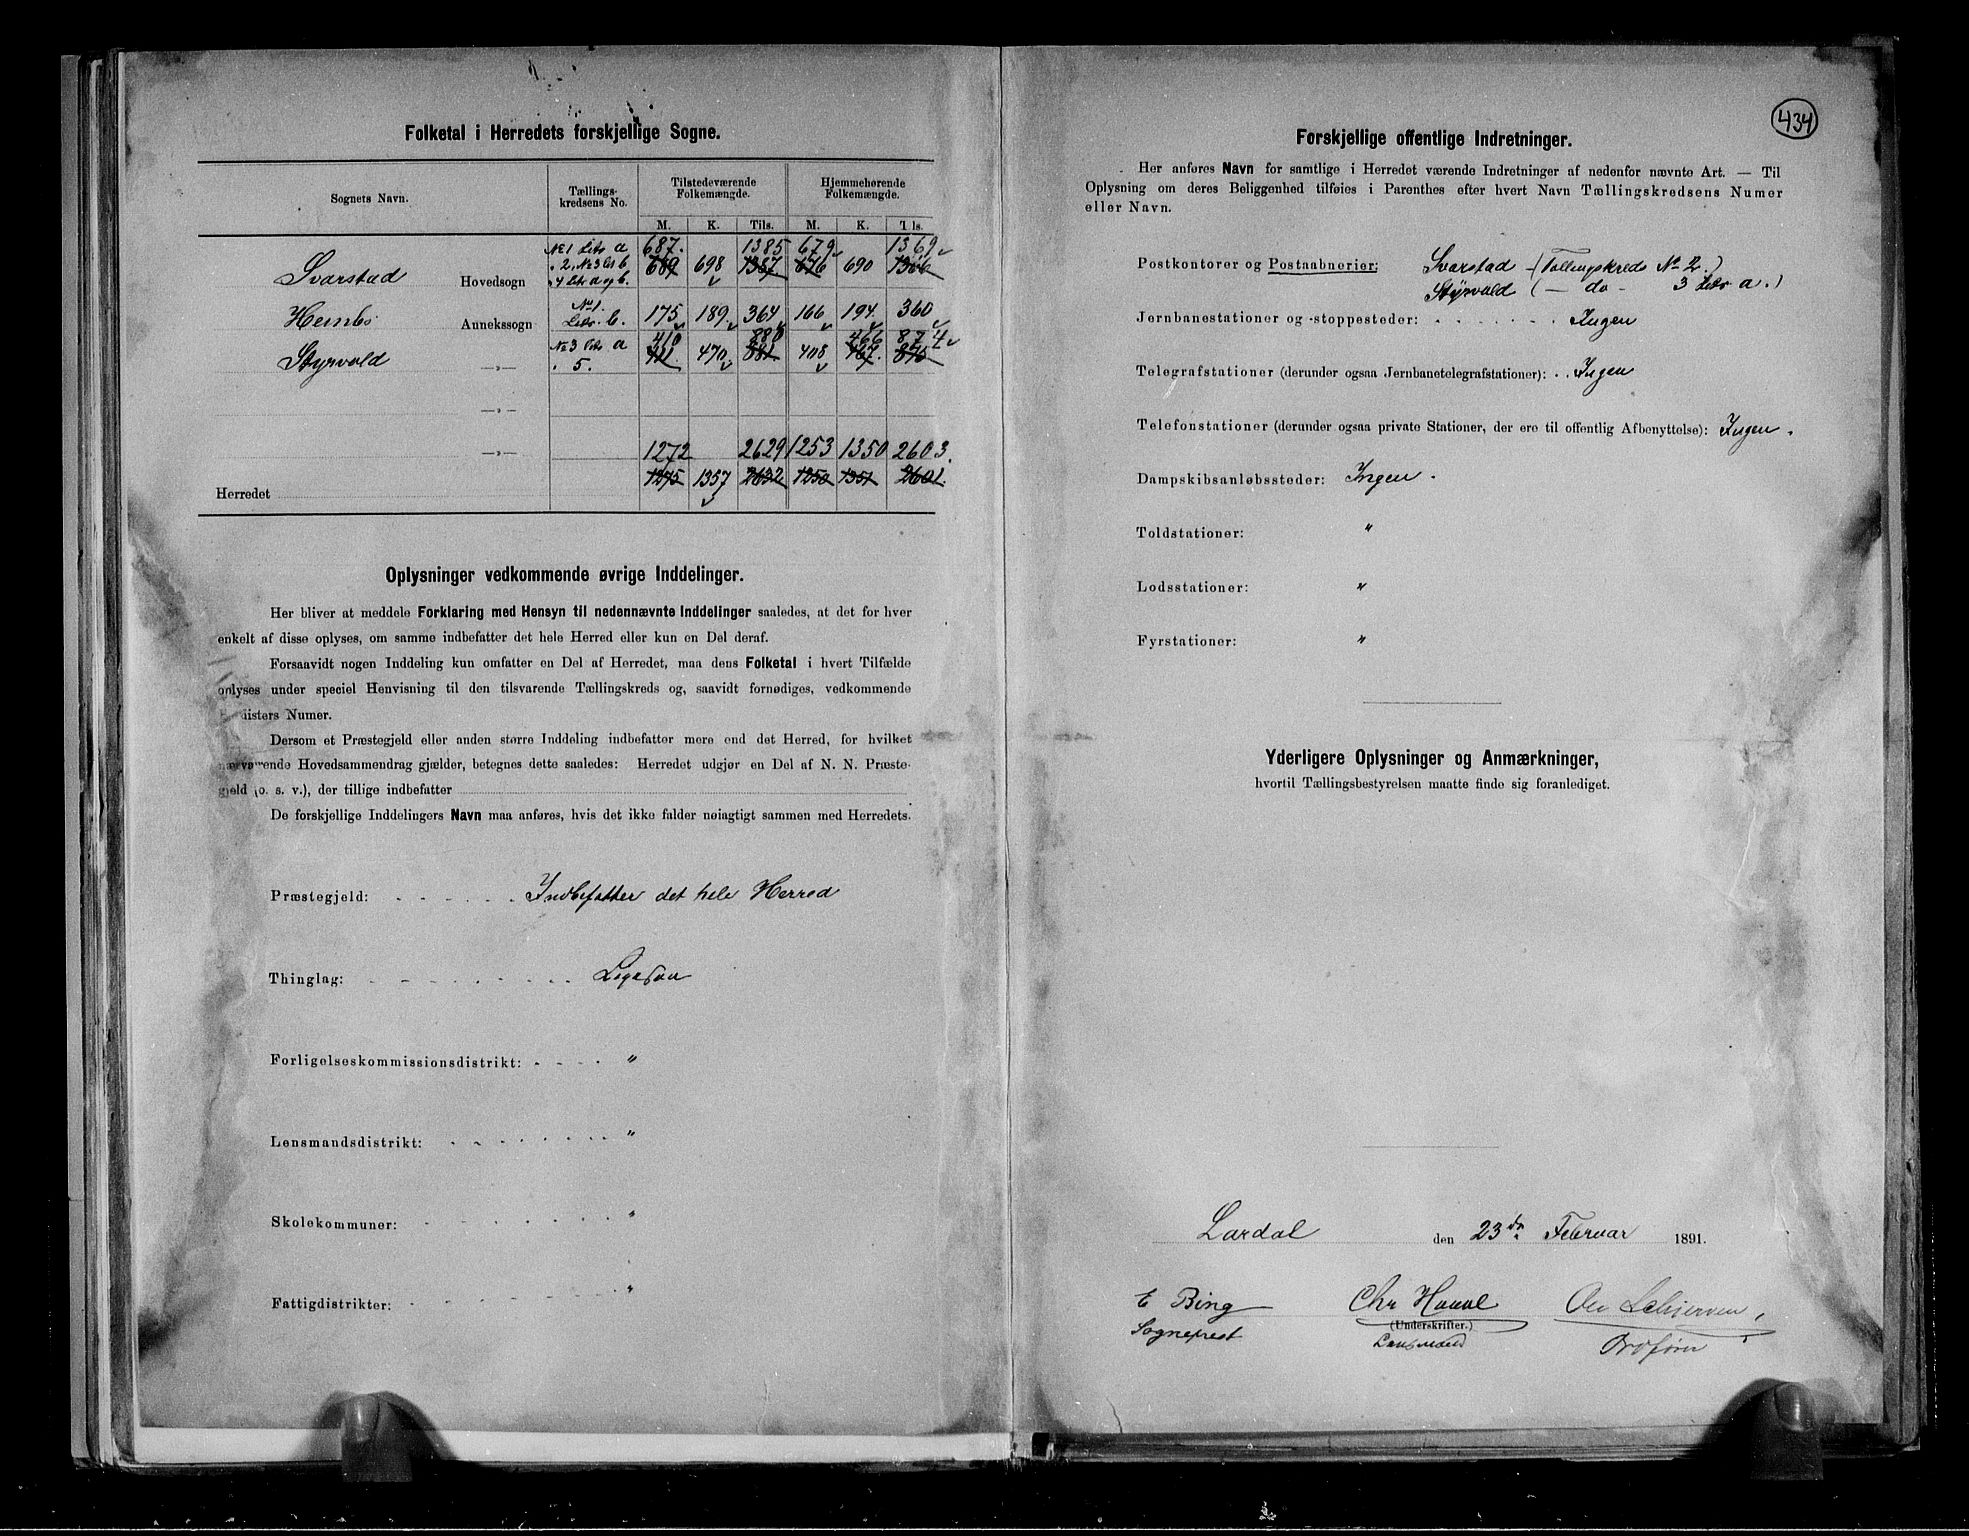 Folketal i Herredets forskjellige Sogne.
Sognets Navn. Tællings-kredsens No. Tilstedeværende Folkemængde. Hjemmehørende Folkemængde.
M. K. Tils. M. K. Tils.
No 1 Litr a 687. 1385 679 1369
Svarstad Hovedsogn " 2, No 3 Lit b 689 698 1387 676 690 1366
" 4 Litr a og b.
Hembs Annekssogn No 1. Litr. b. 175 189 364 166 194. 360
410 880 466 874
Styrvold —„— No 3 Litr a 411. 470 881. 408 467. 875
" 5.
—„—
1272 2629 1253 1350 2603.
—„—
Herredet 1275 1357 2632 1250 1351 2601.
Oplysninger vedkommende øvrige Inddelinger.
Her bliver at meddele Forklaring med Hensyn til nedennævnte Inddelinger saaledes, at det for hver
enkelt af disse oplyses, om samme indbefatter det hele Herred eller kun en Del deraf.
Forsaavidt nogen Inddeling kun omfatter en Del af Herredet, maa dens Folketal i hvert Tilfælde
oplyses under speciel Henvisning til den tilsvarende Tællingskreds og, saavidt fornødiges, vedkommende
Numer.
Dersom et Præstegjeld eller anden større Inddeling indbefatter mere end det Herred, for hvilket
nærværende Hovedsammendrag gjælder, betegnes dette saaledes: Herredet udgjør en Del af N. N. Præste-
gjeld (o. s. v.), der tillige indbefatter
De forskjellige Inddelingers Navn maa anføres, hvis det ikke falder nøiagtigt sammen med Herredets.
Præstegjeld: Indbefatter det hele Herred
Thinglag: Ligesaa
Forligelseskommissionsdistrikt: "
Lensmandsdistrikt: "
Skolekommuner: "
Fattigdistrikter: "
434
Forskjellige offentlige Indretninger.
Her anføres Navn for samtlige i Herredet værende Indretninger af nedenfor nævnte Art. — Til
Oplysning om deres Beliggenhed tilføies i Parenthes efter hvert Navn Tællingskredsens Numer
eller Navn.
Postkontorer og Postaabnerier: Svarstad (Tællingskreds No 2.)
Styrvold (— do — 3 Litr a.)
Jernbanestationer og -stoppesteder: Ingen
Telegrafstationer (derunder ogsaa Jernbanetelegrafstationer): Ingen
Telefonstationer (derunder ogsaa private Stationer, der ere til offentlig Afbenyttelse): Ingen.
Dampskibsanløbssteder: Ingen.
Toldstationer: "
Lodsstationer: "
Fyrstationer: "
Yderligere Oplysninger og Anmærkninger,
hvortil Tællingsbestyrelsen maatte finde sig foranlediget.
Lardal den 23de Februar 1891.
E Bing Chr Haavl
(Underskrifter.)
Sogneprest Lensmand
Ordfører